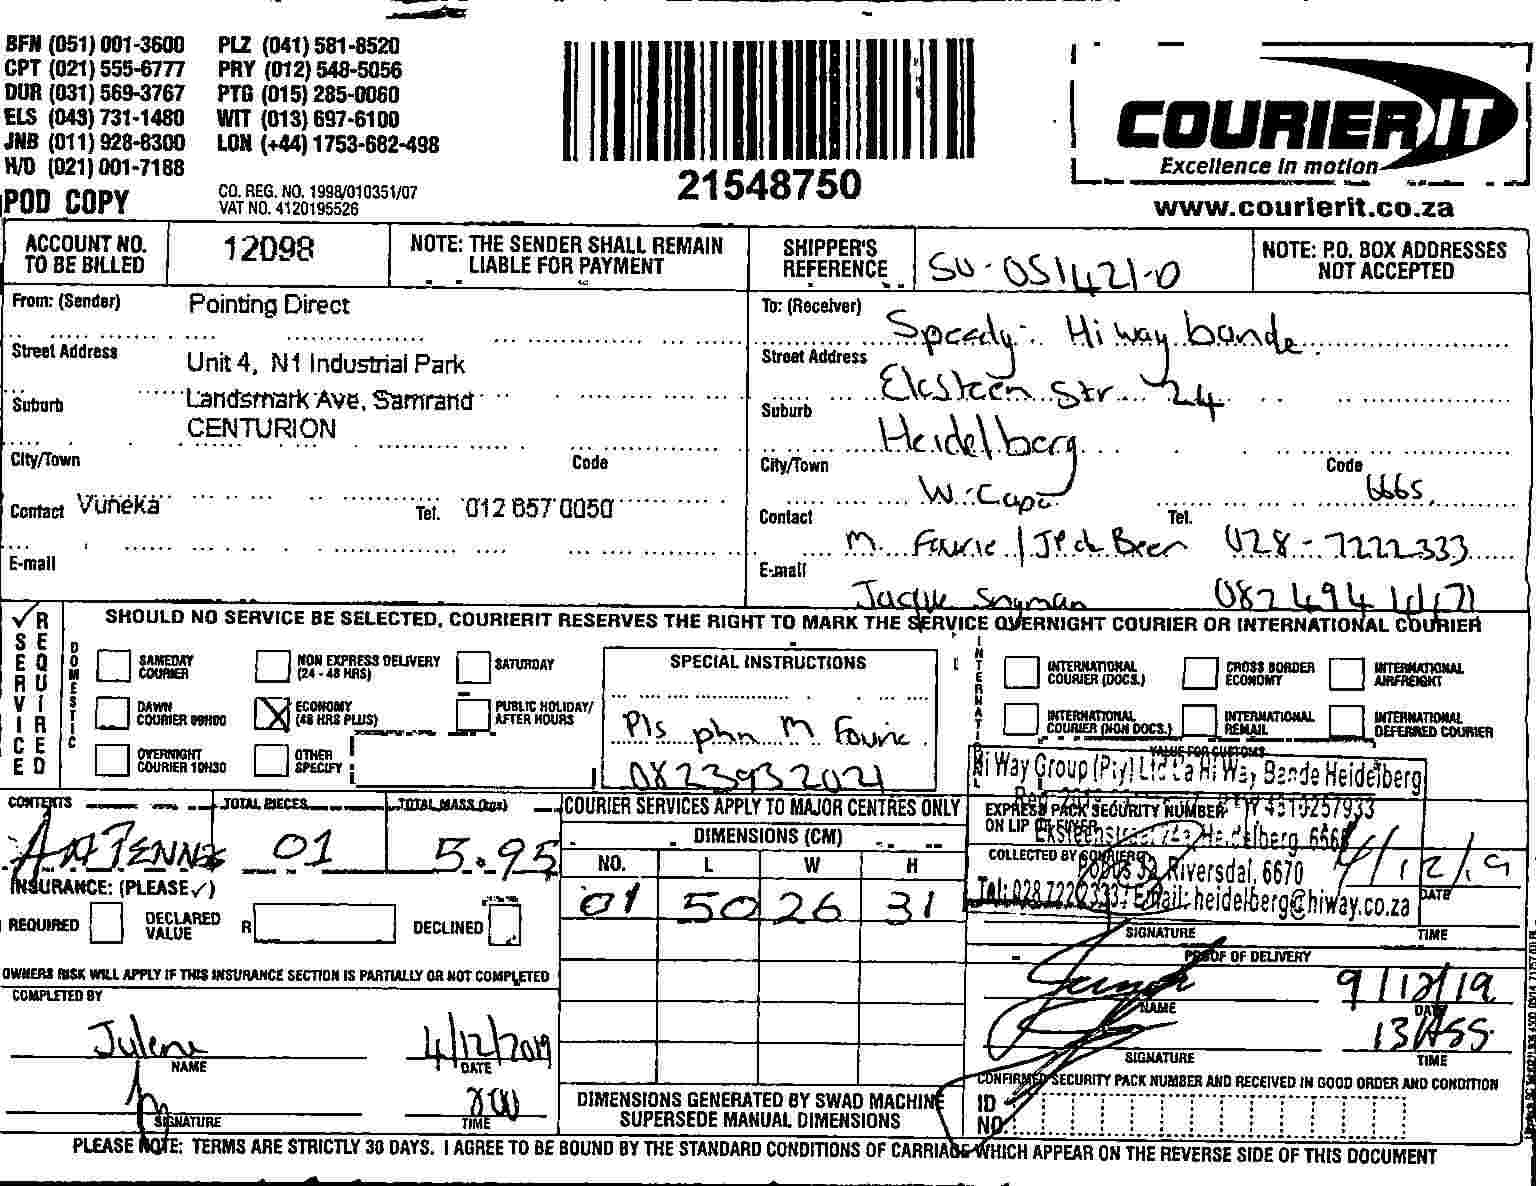 BFN (051) 001-3600 PLZ (041) 581-8520
CPT (021) 555-6777 PRY (012) 548-5056
DUR (031) 569-3767 PTG (015) 285-0060
ELS (043) 731-1480 WIT (013) 697-6100
JNB (011) 928-8300 LON (+44) 1753-682-498
H/O (021) 001-7188
POD COPY
CO. REG. NO. 1998/010351/07
VAT NO. 4120195526
21548750
COURIER IT
Excellence in motion
www.courierit.co.za
ACCOUNT NO. TO BE BILLED
12098
NOTE: THE SENDER SHALL REMAIN LIABLE FOR PAYMENT
SHIPPER'S REFERENCE
SU-051421-0
NOTE: P.O. BOX ADDRESSES NOT ACCEPTED
From: (Sender) Pointing Direct
Street Address Unit 4, N1 Industrial Park
Suburb Landsmark Ave, Samrand
CENTURION
City/Town Code
Contact Vuneka Tel. 012 657 0050
E-mail
To: (Receiver) Speedy: Hi way bande.
Street Address Eksteen Str 24
Suburb Heidelberg
City/Town W. Cape Code 6665.
Contact M. Fourie / JP de Beer Tel. 028-7222333
E-mail Snyman
SERVICE REQUIRED
SHOULD NO SERVICE BE SELECTED, COURIERIT RESERVES THE RIGHT TO MARK THE SERVICE OVERNIGHT COURIER OR INTERNATIONAL COURIER
DOMESTIC
SAMEDAY COURIER
NON EXPRESS DELIVERY (24 - 48 HRS)
SATURDAY
DAWN COURIER 09H00
ECONOMY (48 HRS PLUS)
PUBLIC HOLIDAY/ AFTER HOURS
OVERNIGHT COURIER 10H30
OTHER SPECIFY
SPECIAL INSTRUCTIONS
Pls phn M Fourie
082 393 2021
INTERNATIONAL
INTERNATIONAL COURIER (DOCS.)
CROSS BORDER ECONOMY
INTERNATIONAL AIRFREIGHT
INTERNATIONAL COURIER (NON DOCS.)
INTERNATIONAL REMAIL
INTERNATIONAL DEFERRED COURIER
VALUE FOR CUSTOMS
Hi Way Group (Pty) Ltd t/a Hi Way Bande Heidelberg
EXPRESS PACK SECURITY NUMBER ON LIP
Heidelberg, 6665
COLLECTED BY COURIERIT
Posbus 32, Riversdal, 6670
Tel: 028 722 2333 / Email: heidelberg@hiway.co.za
4/12/19
DATE
SIGNATURE TIME
CONTENTS TOTAL PIECES TOTAL MASS (kgs)
Antenne 01 5.95
INSURANCE: (PLEASE ✓)
REQUIRED DECLARED VALUE R DECLINED
OWNERS RISK WILL APPLY IF THIS INSURANCE SECTION IS PARTIALLY OR NOT COMPLETED
COURIER SERVICES APPLY TO MAJOR CENTRES ONLY
DIMENSIONS (CM)
NO. L W H
01 50 26 31
DIMENSIONS GENERATED BY SWAD MACHINE SUPERSEDE MANUAL DIMENSIONS
COMPLETED BY
Julene 4/12/2019
NAME DATE
SIGNATURE TIME
PROOF OF DELIVERY
9/12/19
NAME DATE
13H55
SIGNATURE TIME
CONFIRMED SECURITY PACK NUMBER AND RECEIVED IN GOOD ORDER AND CONDITION
ID NO.
PLEASE NOTE: TERMS ARE STRICTLY 30 DAYS. I AGREE TO BE BOUND BY THE STANDARD CONDITIONS OF CARRIAGE WHICH APPEAR ON THE REVERSE SIDE OF THIS DOCUMENT